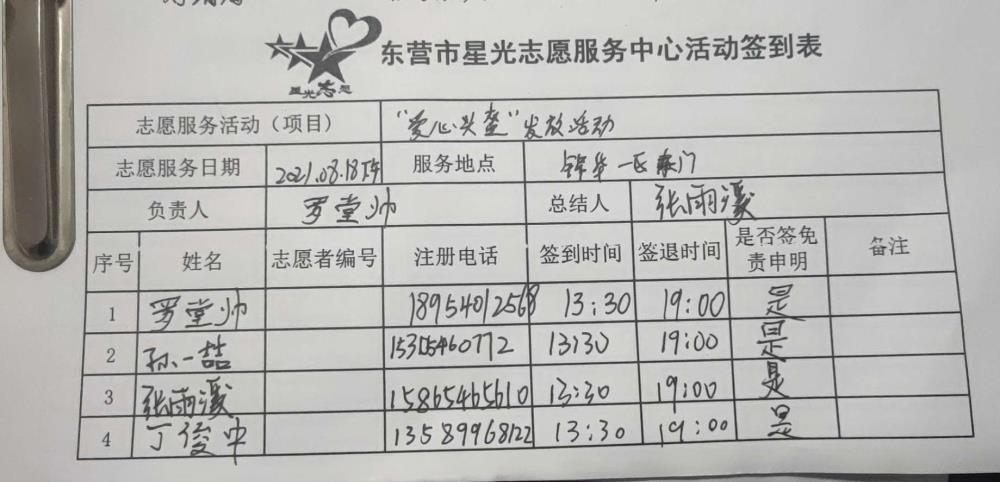 星光志愿
东营市星光志愿服务中心活动签到表
志愿服务活动（项目） "爱心头盔"发放活动
志愿服务日期 2021.08.18下午 服务地点 锦华一区东门
负责人 罗堂帅 总结人 张雨溪
序号 姓名 志愿者编号 注册电话 签到时间 签退时间 是否签免责申明 备注
1 罗堂帅 18954012568 13:30 19:00 是
2 孙一喆 15315460772 13:30 19:00 是
3 张雨溪 15865465610 13:30 19:00 是
4 丁俊中 13589968122 13:30 19:00 是